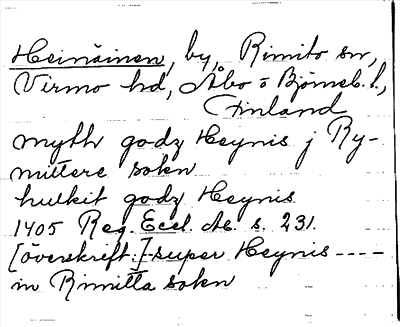 Heinäinen, by, Rimito sn,
Virmo hd, Åbo o Björneb. l.,
Finland
myth godz Heynis j Ry-
mittere sokn
hulkit godz Heynis
1405 Reg. Eccl. Ab. s. 231.
[överskrift:] super Heynis ----
in Rimitta sokn